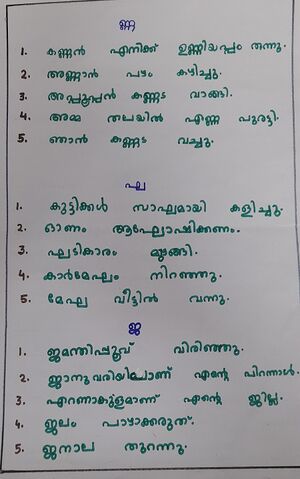 ണ്ണ
1. കണ്ണൻ എനിക്ക് ഉണ്ണിയപ്പം തന്നു.
2. അണ്ണാൻ പഴം കഴിച്ചു.
3. അപ്പൂപ്പൻ കണ്ണട വാങ്ങി.
4. അമ്മ തലയിൽ എണ്ണ പുരട്ടി.
5. ഞാൻ കണ്ണട വച്ചു.
ഘ
1. കുട്ടിക്കൾ സാഘമായി കളിച്ചു.
2. ഓണം ആഘോഷിക്കണം.
3. ഘടികാരം മുഴങ്ങി.
4. കാർമേഘം നിറഞ്ഞു.
5. മേഘ വീട്ടിൽ വന്നു.
ജ
1. ജമന്തിപ്പൂവ് വിരിഞ്ഞു.
2. ജാനുവരിയിലാണ് എന്റെ പിറന്നാൾ.
3. എറണാകുളമാണ് എന്റെ ജില്ല.
4. ജലം പാഴാക്കരുത്.
5. ജനാല തുറന്നു.